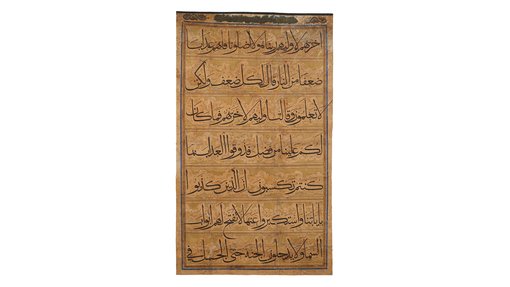 اخرىهم لاولىهم ربنا هولا اضلونا فاتهم عذابا
ضعفا من النار قال لكل ضعف ولكن
لا تعلمون وقالت اوليهم لاخرىهم فما كان
لكم علينا من فضل فذوقوا العذاب بما
كنتم تكسبون ان الذين كذبوا
باياتنا واستكبروا عنها لا تفتح لهم ابواب
السما ولا يدخلون الجنة حتى يلج الجمل في